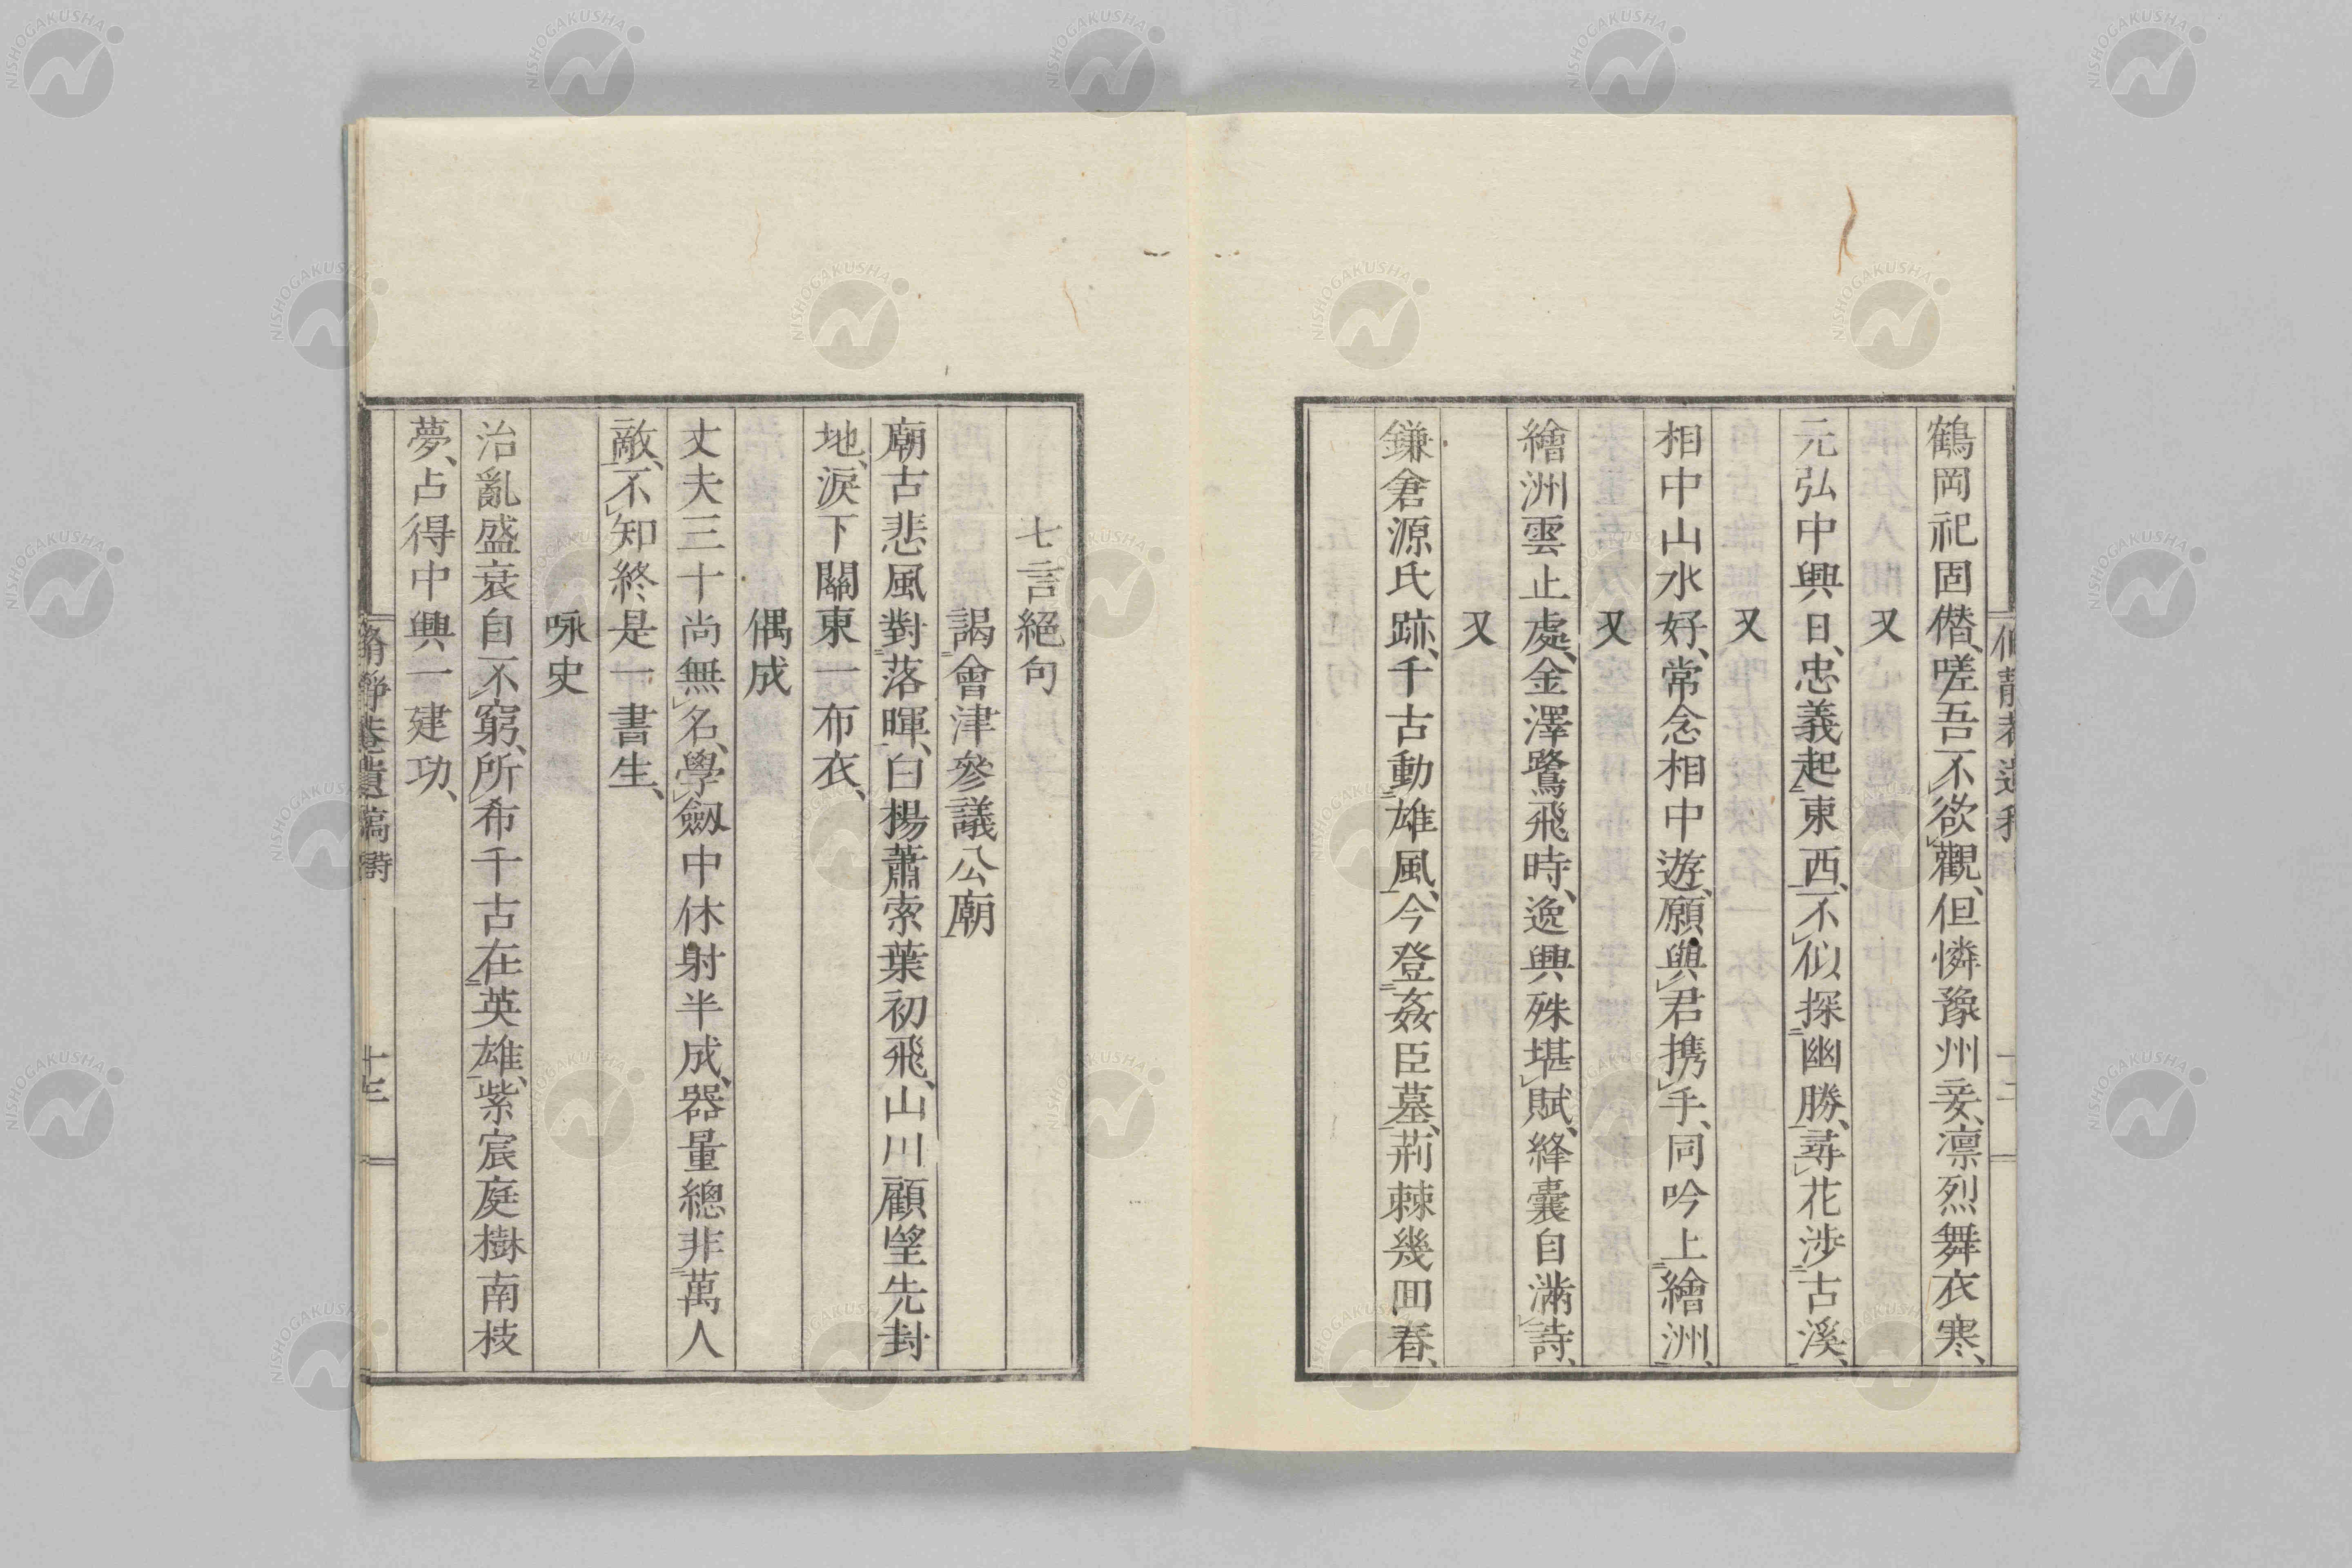 鶴岡祀固僭、嗟吾不欲觀、但憐豫州妾、凛烈舞衣寒、
又
元弘中興日、忠義起東西、不似探幽勝、尋花涉古溪、
又
相中山水好、常念相中遊、願與君携手、同吟上繪洲、
又
繪洲雲止處、金澤鷺飛時、逸興殊堪賦、絳囊自滿詩、
又
鎌倉源氏跡、千古動雄風、今登姦臣墓、荊棘幾回春、
七言絕句
謁會津參議公廟
廟古悲風對落暉、白楊蕭索葉初飛、山川顧望先封
地、淚下關東一布衣、
偶成
丈夫三十尚無名、學劔中休射半成、器量總非萬人
敵、不知終是一書生、
咏史
治亂盛衰自不窮、所希千古在英雄、紫宸庭樹南枝
夢、占得中興一建功、
脩靜菴遺稿 詩
十三
NISHOGAKUSHA